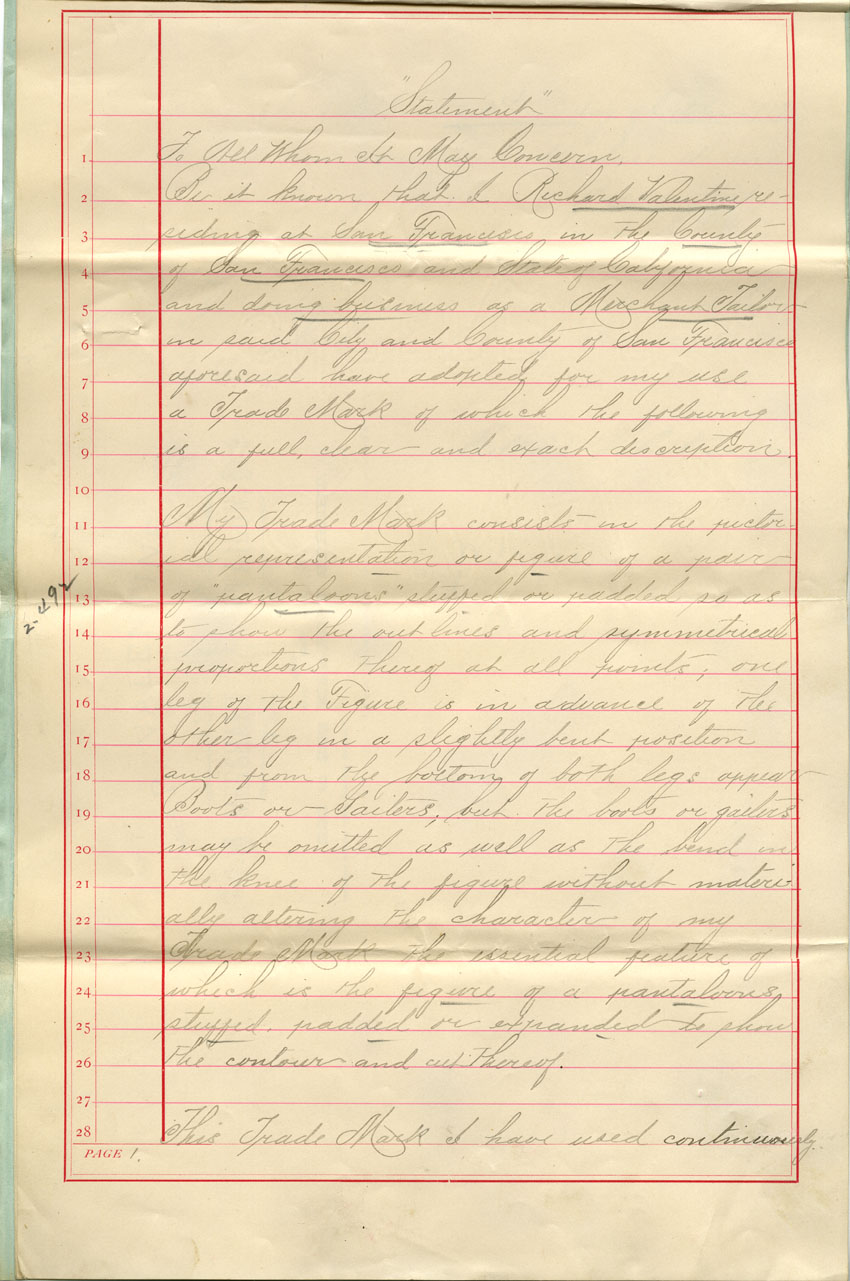 "Statement"
1 To All Whom It May Concern.
2 Be it known that I Richard Valentine re-
3 siding at San Francisco in the County
4 of San Francisco and State of California
5 and doing business as a Merchant Tailor
6 in said City and County of San Francisco
7 aforesaid have adopted for my use
8 a Trade Mark of which the following
9 is a full, clear and exact discreption.
10
11 My Trade Mark consists in the pictor-
12 ial representation or figure of a pair
13 of "pantaloons" stuffed or padded so as
14 to show the outlines and symmetrical
15 proportions thereof at all points; one
16 leg of the Figure is in advance of the
17 other leg in a slightly bent position
18 and from the bottom of both legs appear
19 Boots or Gaiters, but the boots or gaiters
20 may be omitted as well as the bend in
21 the knee of the figure without materi-
22 ally altering the character of my
23 Trade Mark the essential feature of
24 which is the figure of a pantaloons,
25 stuffed, padded or expanded to show
26 the contour and cut thereof.
27
28 This Trade Mark I have used continuously
PAGE 1.
2-492